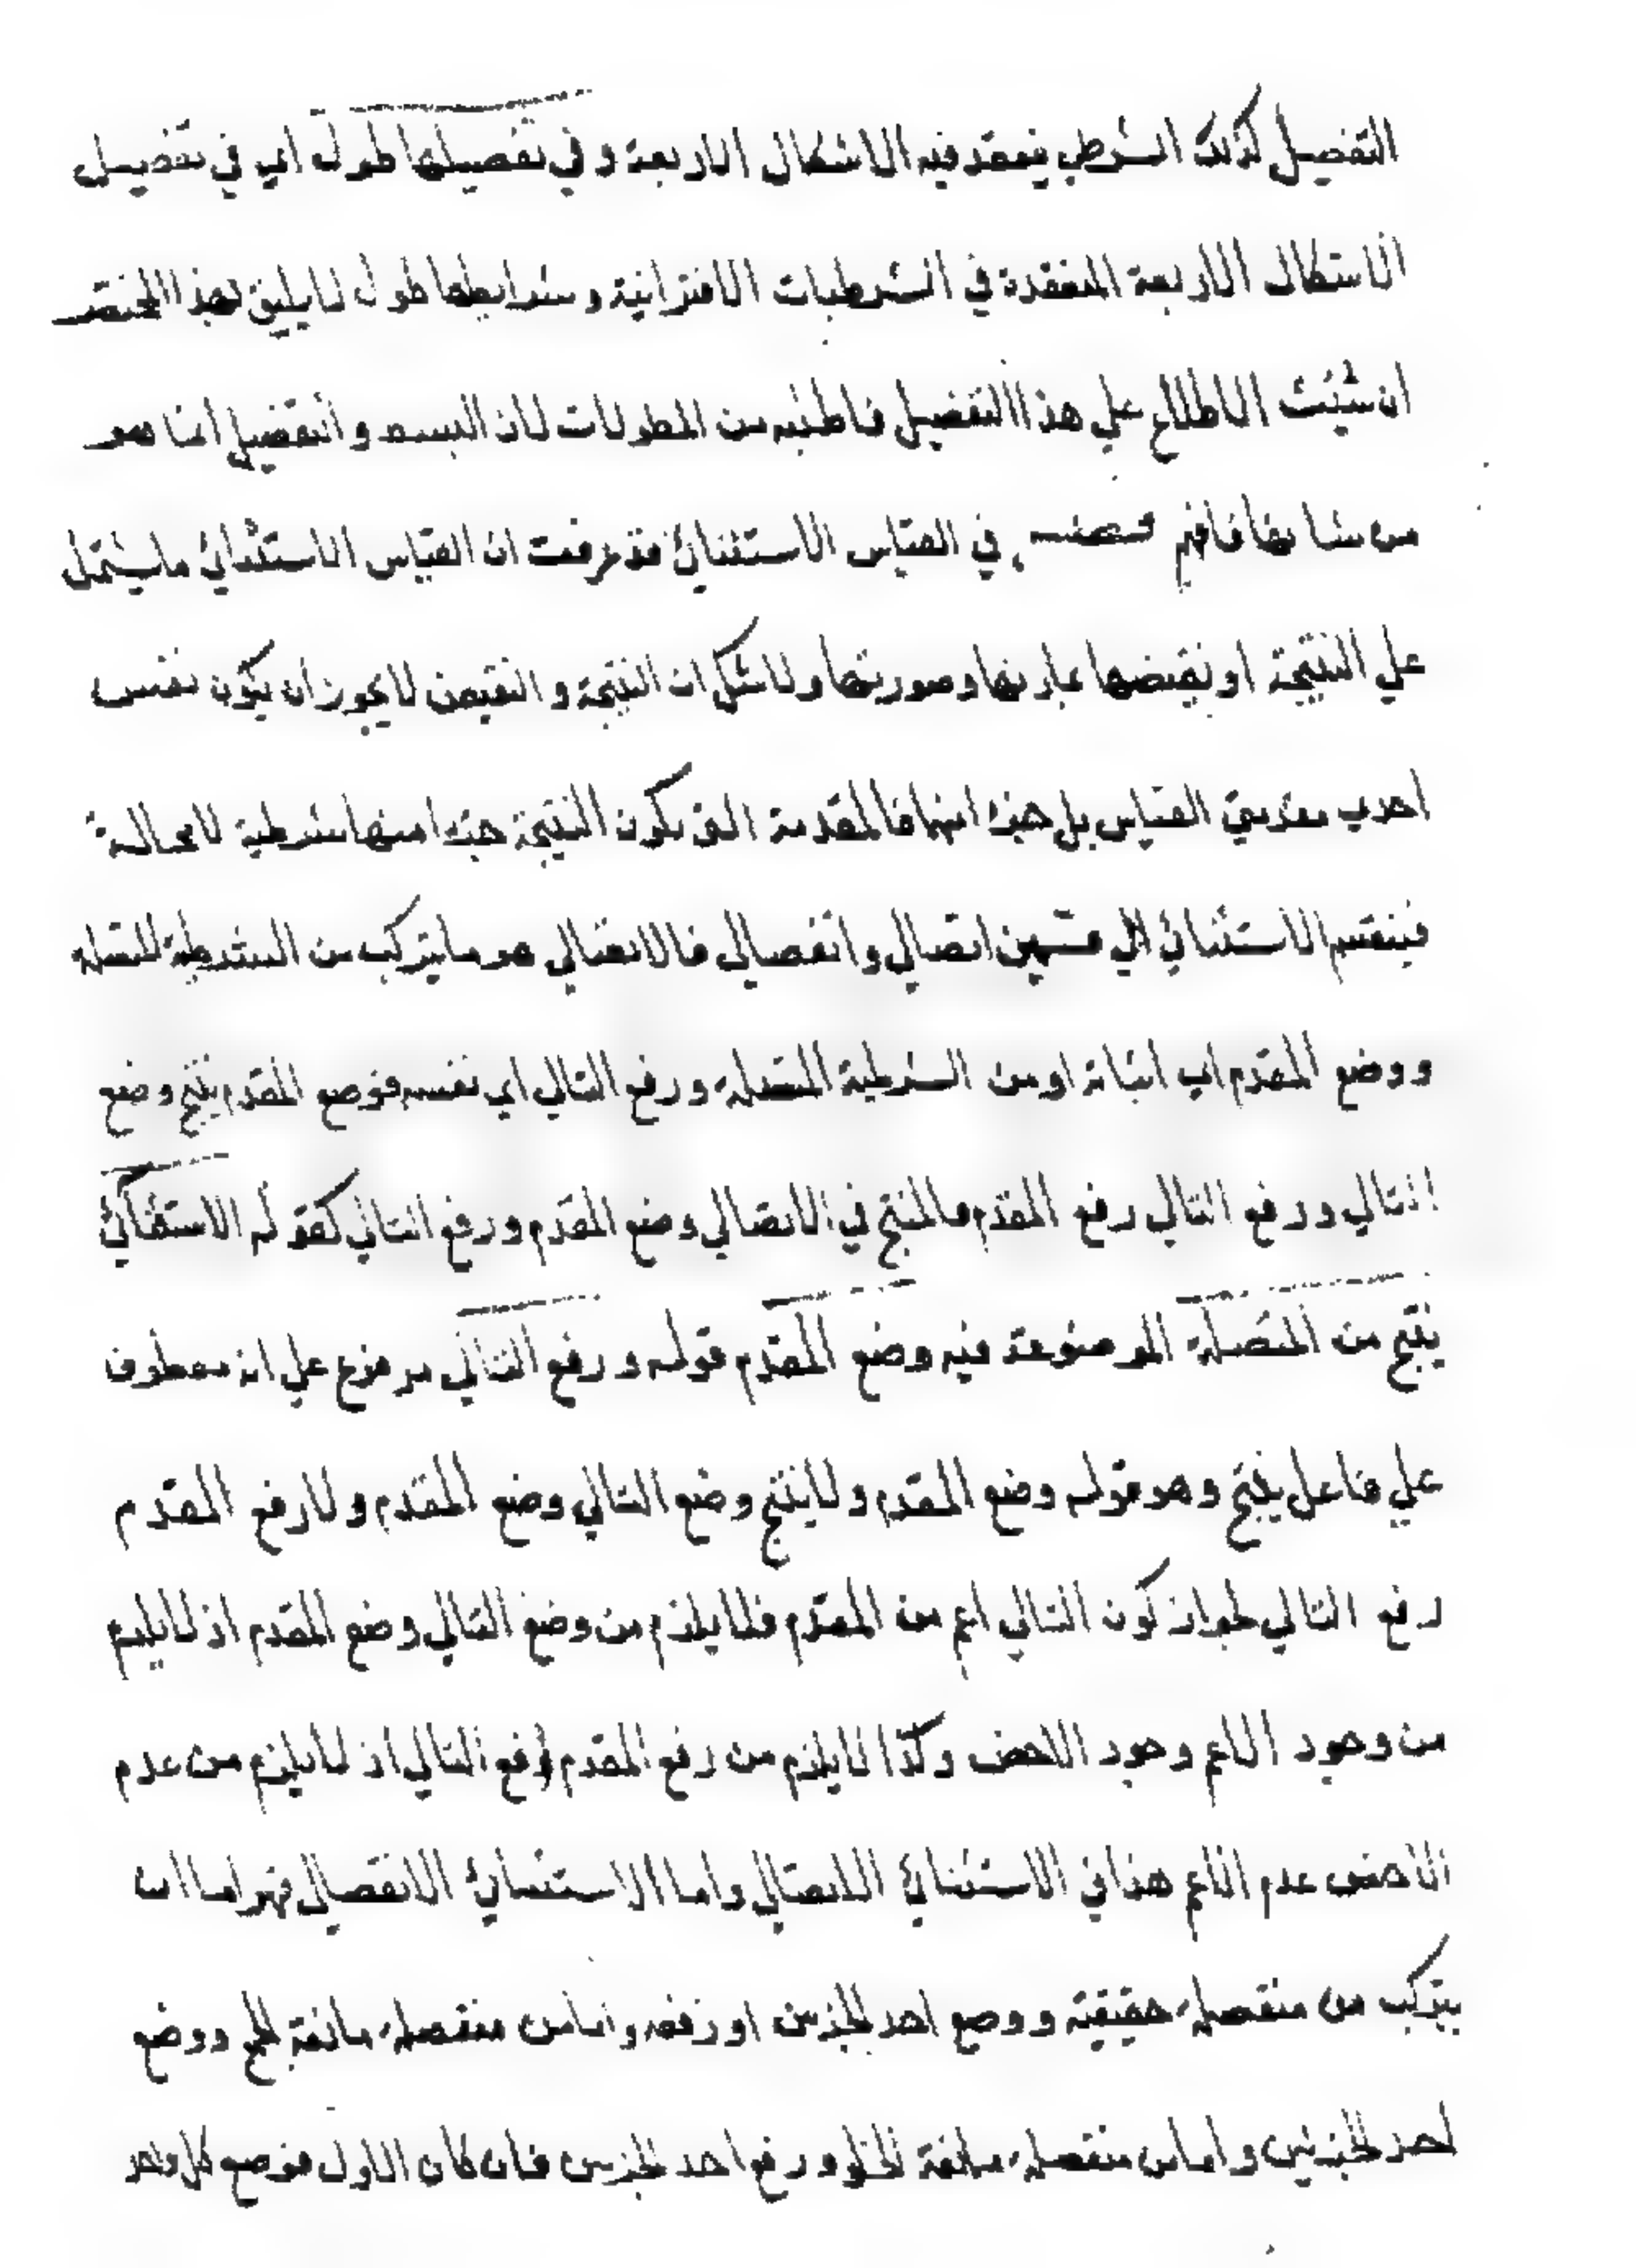 التفصيل كذلك الشرطي ينعقد فيه الاشكال الاربعة وفي تفصيلها طول اي في تفصيل
الاشكال الاربعة المنعقدة في الشرطيات الاقترانية وشرايطها طول لا يليق بهذا المختصر
ان شئت الاطلاع علي هذا التفصيل فاطلبه من المطولات لان البسط والتفصيل انما هو
من شانها فافهم فصل في القياس الاستثنائي قد عرفت ان القياس الاستثنائي ما يشتمل
علي النتيجة او نقيضها بمادتها وصورتها ولا شك ان النتيجة والنقيض لا يجوز ان يكون نفس
احدي مقدمتي القياس بل جزء منهما فالمقدمة التي تكون النتيجة جزء منها شرطية لا محالة
فينقسم الاستثنائي الي قسمين اتصالي وانفصالي فالاتصالي هو ما يتركب من الشرطية المتصلة
ووضع المقدم اي اثباته او من الشرطية المتصلة ورفع التالي اي نفيه فوضع المقدم ينتج وضع
التالي ورفع التالي رفع المقدم فالمنتج في الاتصالي وضع المقدم ورفع التالي كقوله الاستثنائي
ينتج من المتصلة الموضوعة فيه وضع المقدم قوله ورفع التالي مرفوع علي انه معطوف
علي فاعل ينتج وهو قوله وضع المقدم ولا ينتج وضع التالي وضع المقدم ولا رفع المقدم
رفع التالي لجواز كون التالي اعم من المقدم فلا يلزم من وضع التالي وضع المقدم اذ لا يلزم
من وجود الاعم وجود الاخص وكذا لا يلزم من رفع المقدم رفع التالي اذ لا يلزم من عدم
الاخص عدم الاعم هذا في الاستثنائي الاتصالي واما الاستثنائي الانفصالي فهو اما ان
يتركب من منفصلة حقيقية ووضع احد الجزئين او رفعه واما من منفصلة مانعة الجمع ووضع
احد الجزئين واما من منفصلة مانعة الخلو ورفع احد الجزئين فان كان الاول فوضع كل واحد